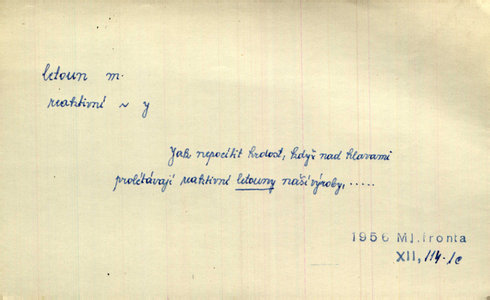 letoun m.
reaktivní ~ y
Jak nepocítit hrdost, když nad hlavami
prolétávají reaktivní letouny naší výroby, .....
1956 Ml.fronta
XII, 114. 1c